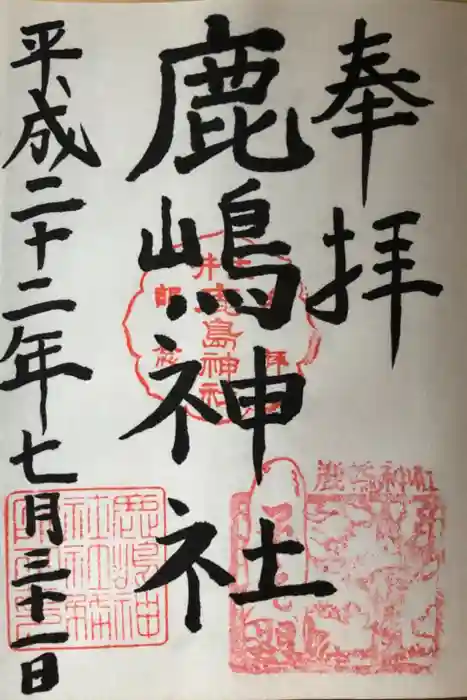 奉拝
鹿嶋神社
平成二十二年七月三十一日
鹿島神社
鹿嶋神社